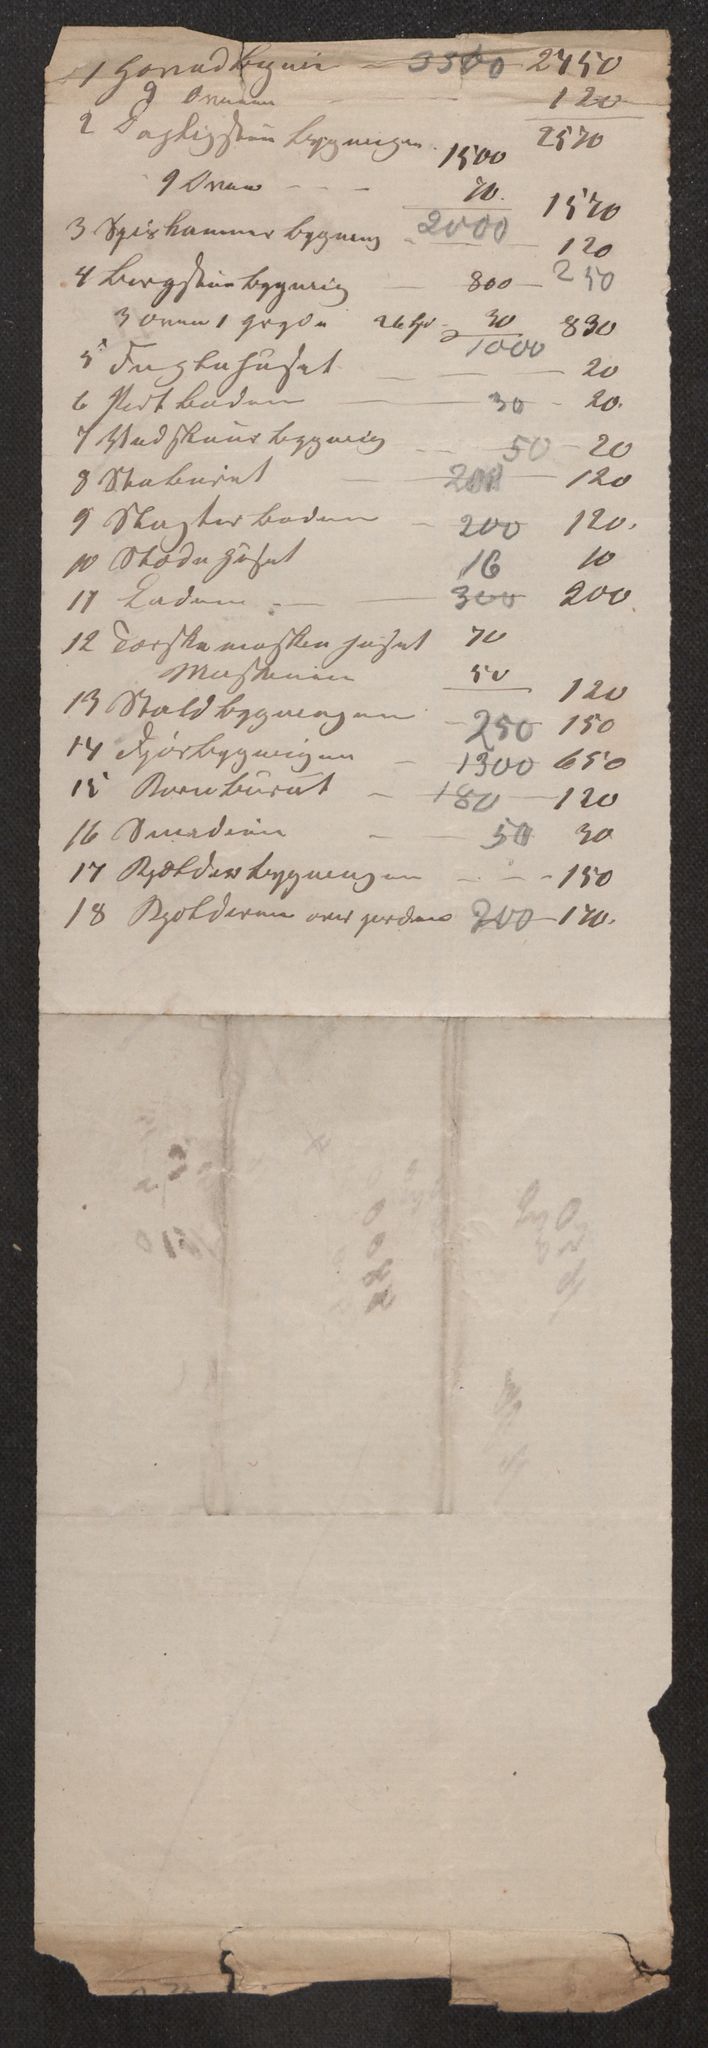 1 Hovedbygnin 3500 2450
9 Ovnene 120
2570
2 Dagligstue bygningen 1500
9 Ovne 70. 1570
2000
3 Spiskammer bygning 120
4 Borgstue bygning 800 250
3 ovne 1 gryde 30 830
1000
5 Fuglehuset 20
6 Port boden 30 20.
7 Vedskuur bygning 50 20
8 Staburet 200 120
9 Slagter boden 200 120.
10 huset 16 10
11 Laden 300 200
12 Torske maskin huset 70
Maskinen 50 120
13 Staldbygningen 250 150
14 Fjøsbygningen 1300 650
15 Kornburet 180 120
16 Smedien 50 30
17 Kjelderbygningen 150
18 Kjelderen over jorden 200 170.